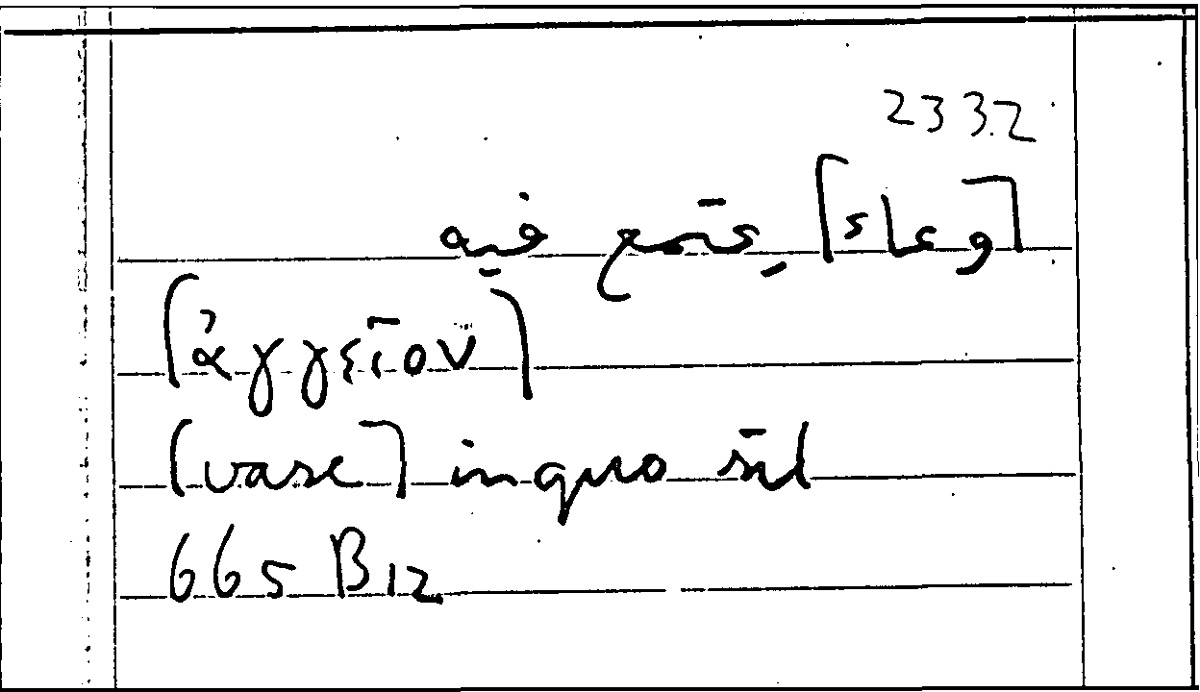 233.2
[وعاء] يجتمع فيه
[ἀγγεῖον]
[vase] in quo sīl
665 B12